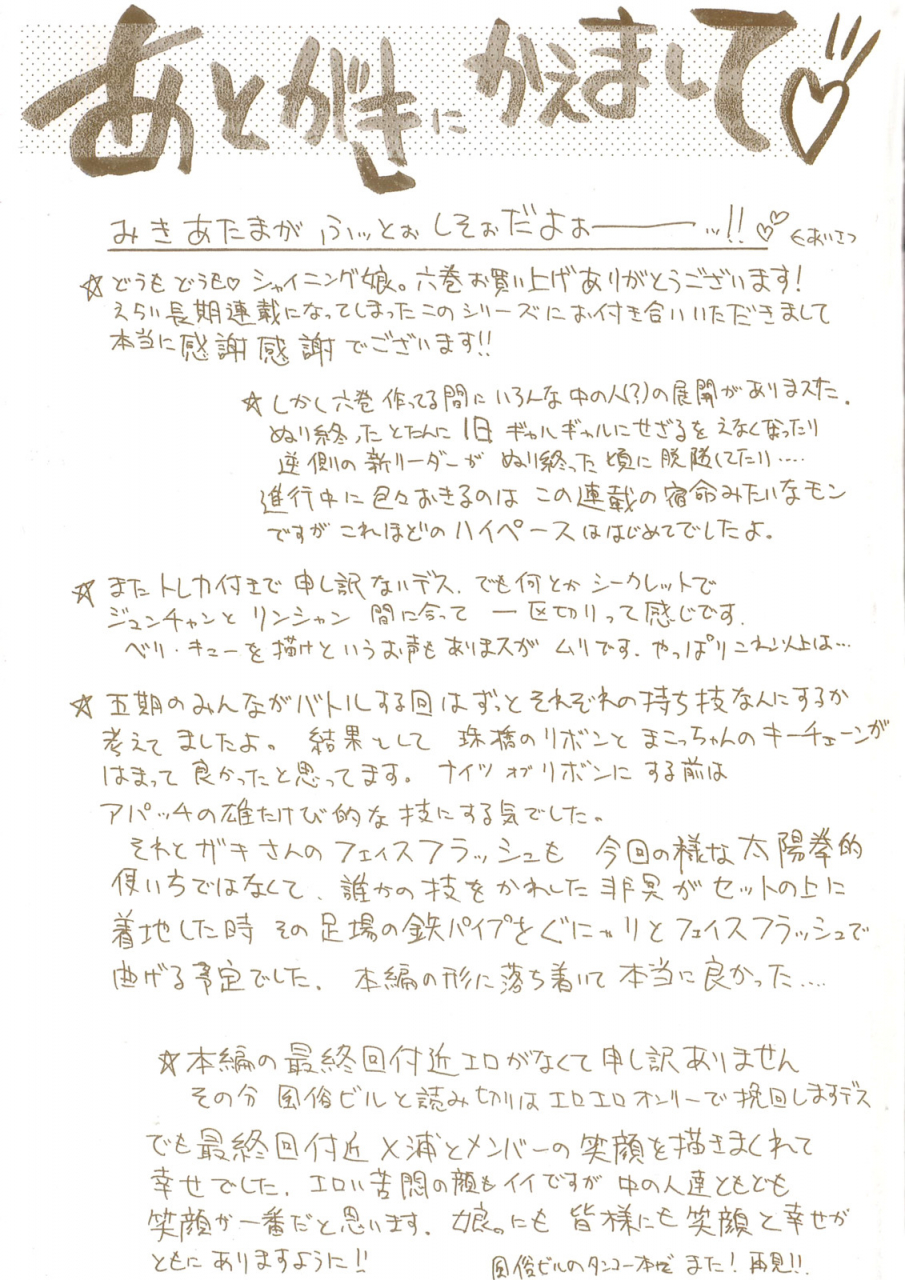 あとがきにかえまして♡
みきあたまがふっとぉしそぉだよぉーーーッ!!♡♡ ←あいさつ
☆どうもどうも♡シャイニング娘。六巻お買い上げありがとうございます!
えらい長期連載になってしまったこのシリーズにお付き合いいただきまして
本当に感謝感謝でございます!!
☆しかし六巻作ってる間にいろんな中の人(?)の展開がありまスた。
ぬり終ったとたんに1日ギャルギャルにせざるをえなくなったり
逆側の新リーダーがぬり終った頃に脱隊してたり....
進行中に色々おきるのはこの連載の宿命みたいなモン
ですがこれほどのハイペースははじめてでしたよ。
☆またトレカ付きで申し訳ないデス.でも何とかシークレットで
ジュンチャンとリンシャン間に合って一区切りって感じです.
ベリ・キューを描けというお声もありまスがムリです.やっぱりこれ以上は...
☆五期のみんながバトルする回はずっとそれぞれの持ち技なんにするか
考えてましたよ。結果として珠橋のリボンとまこっちゃんのキーチェーンが
はまって良かったと思ってます。ナイツオブリボンにする前は
アパッチの雄たけび的な技にする気でした。
それとガキさんのフェイスフラッシュも今回の様な太陽拳的
使いちではなくて、誰かの技をかわした非異がセットの上に
着地した時その足場の鉄パイプをぐにゃりとフェイスフラッシュで
曲げる予定でした.本編の形に落ち着いて本当に良かった....
☆本編の最終回付近エロがなくて申し訳ありません
その分風俗ビルと読み切りはエロエロオンリーで挽回しますデス
でも最終回付近メ浦とメンバーの笑顔を描きまくれて
幸せでした.エロい苦悶の顔もイイですが中の人達ともども
笑顔が一番だと思います.娘。にも皆様にも笑顔と幸せが
ともにありますように!!
風俗ビルのタンコー本でまた!再見!!